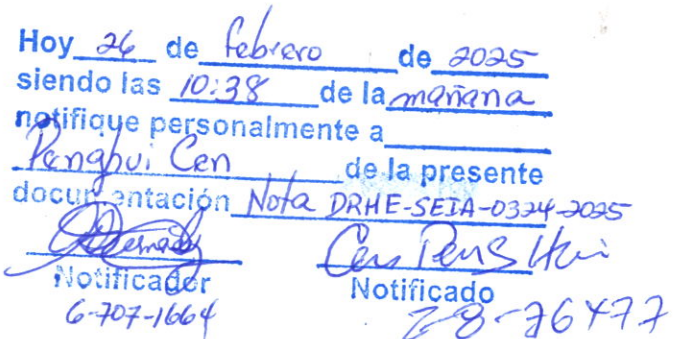 Hoy 26 de febrero de 2025
siendo las 10:38 de la mañana
notifique personalmente a
Penghui Cen de la presente
documentación Nota DRHE-SEIA-0324-2025
Notificador Notificado
6-707-1664